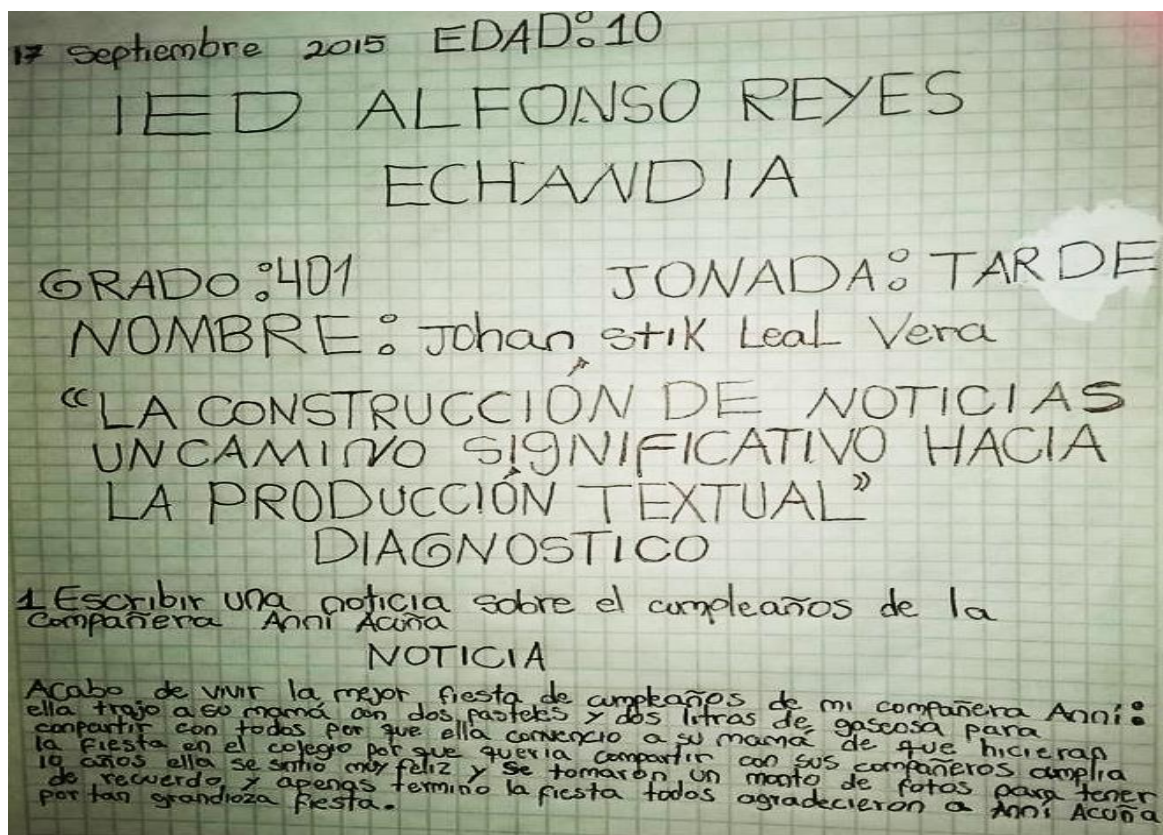 17 Septiembre 2015 EDAD:10
IED ALFONSO REYES
ECHANDIA
GRADO:401 JONADA: TARDE
NOMBRE: Johan stik Leal Vera
“LA CONSTRUCCIÓN DE NOTICIAS
UN CAMINO SIGNIFICATIVO HACIA
LA PRODUCCIÓN TEXTUAL”
DIAGNOSTICO
1 Escribir una noticia sobre el cumpleaños de la
Compañera Anni Acuña
NOTICIA
Acabo de vivir la mejor fiesta de cumpleaños de mi compañera Anni:
ella trajo a su mamá con dos pasteles y dos litros de gaseosa para
conpartir con todos por que ella convencio a su mamá de que hicieran
la fiesta en el colegio por que queria compartir con sus compañeros cumplia
10 años ella se sintio muy feliz y se tomaron un monto de fotos para tener
de recuerdo, y apenas termino la fiesta todos agradecieron a Anni Acuña
por tan grandioza fiesta.